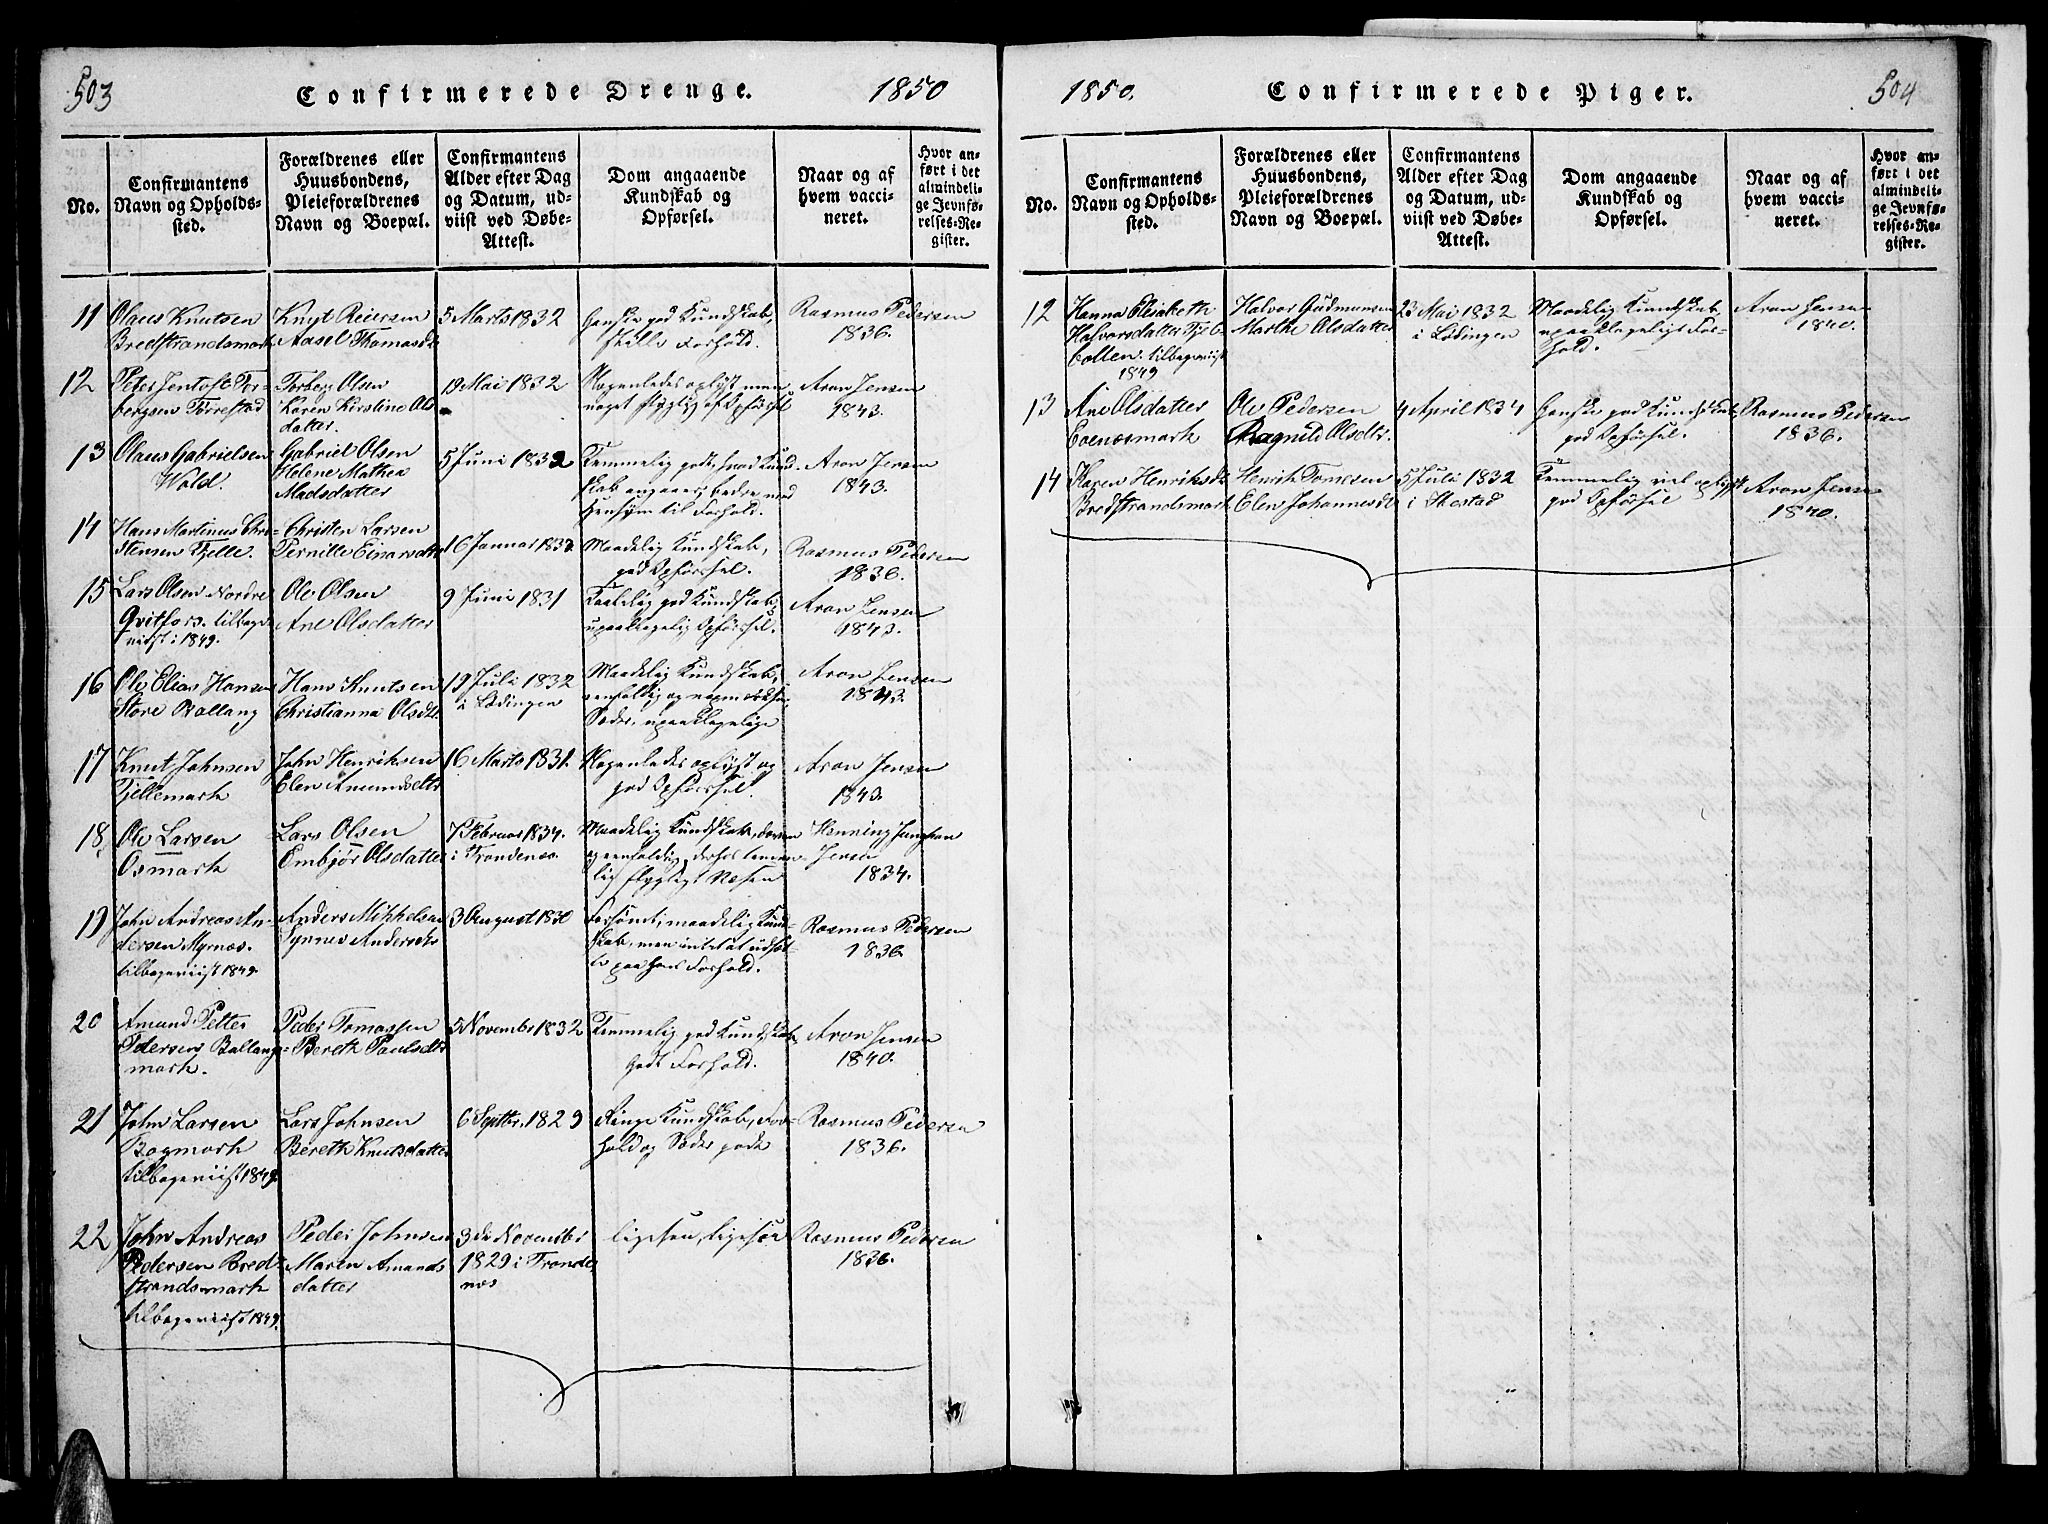 503 Confirmerede Drenge. 1850
No.
Confirmantens Navn og Opholds-sted.
Forældrenes eller Huusbondens, Pleieforældrenes Navn og Boepæl.
Confirmantens Alder efter Dag og Datum, ud-viist ved Døbe-Attest.
Dom angaaende Kundskab og Opførsel.
Naar og af hvem vacci-neret.
Hvor an-ført i det almindeli-ge Jevnfø-relses-Re-gister.
11
Olaus Knutsen
Bredstrandsmark
Knut Reiersen
Aasel Thomasdt
5 Marts 1832
Ganske god Kundskab,
stille Forhold.
Rasmus Pedersen
1836.
12
Peter Jentoft Tor-
bergsen Torrestad
Torberg Olsen
Karen Kirstine Ols
datter.
19 Mai 1832
Nogenledes oplyst men
noget flygtig af Opförsel
Aron Jensen
1843.
13
Olaus Gabrielsen
Wold.
Gabriel Olsen
Helene Mathea
Madsdatter
5 Juni 1832
Temmelig godt, hvad Kund-
skab angaaer, bedre med
Hensyn til Forhold.
Aron Jensen
1843.
14
Hans Martinus Chri-
stensen Tjelle.
Christen Larsen
Pernille Einarsdtr
16 Januar 1833
Maadelig Kundskab,
god Opförsel.
Rasmus Pedersen
1836.
15
Lars Olsen Nordre
Qvitfors. tilbage
viist i 1849.
Ole Olsen
Ane Olsdatter
9 Juni 1831
Taalelig god Kundskab,
upaaklagelig Opförsel.
Aron Jensen
1843.
16
Ole Elias Hansen
Store Ballang
Hans Knutsen
Christianna Olsdt.
19 Juli 1832
i Lødingen
Maadelig Kundskab,
eenfoldig og
Sæder, upaaklagelige
Aron Jensen
1843.
17
Knut Johnsen
Tjellemark
John Henriksen
Elen Amundsdtr
16 Marts 1831.
Nogenledes oplyst og
god Opförsel.
Aron Jensen
1843.
18.
Ole Larsen
Osmark
Lars Olsen
Embjør Olsdatter
7 Februar 1834.
i Trondenæs.
Maadelig Kundskab,
og eenfoldig, derhos temme-
lig flygtigt Væsen
Henning Junghan
Jensen
1834.
19
John Andreas An-
dersen Myrnæs.
tilbageviist 1849.
Anders Mikkelsen
Synnev Andersdt
3 August 1830
Forsömt, maadelig Kund-
skab, men intet at udsæt-
te paa hans Forhold.
Rasmus Pedersen
1836.
20
Amund Petter
Pedersen Ballang-
mark.
Peder Tomassen
Bereth Paulsdtr
5 Novembr 1832
Temmelig god Kundskab,
godt Forhold.
Aron Jensen
1840.
21
John Larsen
Bogmark
tilbageviist 1849.
Lars Johnsen
Bereth Knutsdatter
6 Septbr. 1829
Ringe Kundskab, For-
hold og Sæder gode
Rasmus Pedersen
1836.
22
John Andreas
Pedersen Bred-
strandsmark
tilbageviist 1849.
Peder Johnsen
Maren Amunds
datter
3de November
1829 i Tronde-
næs
ligesaa, ligesaa
Rasmus Pedersen
1836.
1850. Confirmerede Piger. 504
No.
Confirmantens Navn og Opholds-sted.
Forældrenes eller Huusbondens, Pleieforældrenes Navn og Boepæl.
Confirmantens Alder efter Dag og Datum, ud-viist ved Døbe-Attest.
Dom angaaende Kundskab og Opførsel.
Naar og af hvem vacci-neret.
Hvor an-ført i det almindeli-ge Jevnfø-relses-Re-gister.
12
Hanna Elisabeth
Halvorsdatter
tilbageviist
1849
Halvor Gudmunsen
Marthe Olsdatter
23 Mai 1832
i Lødingen
Maadelig Kundskab,
upaaklageligt For-
hold.
Aron Jensen
1840.
13
Ane Olsdatter
Evenæsmark
Ole Pedersen
Ragnild Olsdtr.
4 April 1834
Ganske god Kundskab,
god Opførsel.
Rasmus Pedersen
1836.
14
Karen Henriksdt
Bredstrandsmark
Henrik Tomesen
Elen Johannesdt
5 Juli 1832
i Ibestad
Temmelig vel oplyst
god Opførsel
Aron Jensen
1840.